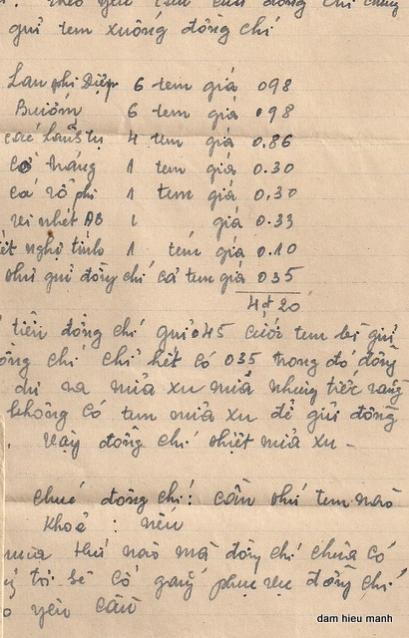 gửi tem xuống đồng chí
Lan phi Điệp 6 tem giá 098
Bướm 6 tem giá 098
các 4 tem giá 0.86
cờ 1 tem giá 0.30
cá rô phi 1 tem giá 0.30
vi nhét AB 1 giá 0.33
nghệ tĩnh 1 tem giá 0.10
phí gửi đồng chí cả tem giá 035
4đ20
tiền đồng chí gửi 045 cước tem bị gửi
chí chỉ hết có 035 trong đó đồng
dư ra nửa xu nữa nhưng tiếc rằng
không có tem nửa xu để gửi đồng
vậy đồng chí thiệt nửa xu –
chúc đồng chí: cần thứ tem nào
khoẻ : nếu
thứ nào mà đồng chí chưa có
tôi sẽ cố gắng phục vụ đồng chí
yêu cầu
dam hieu manh